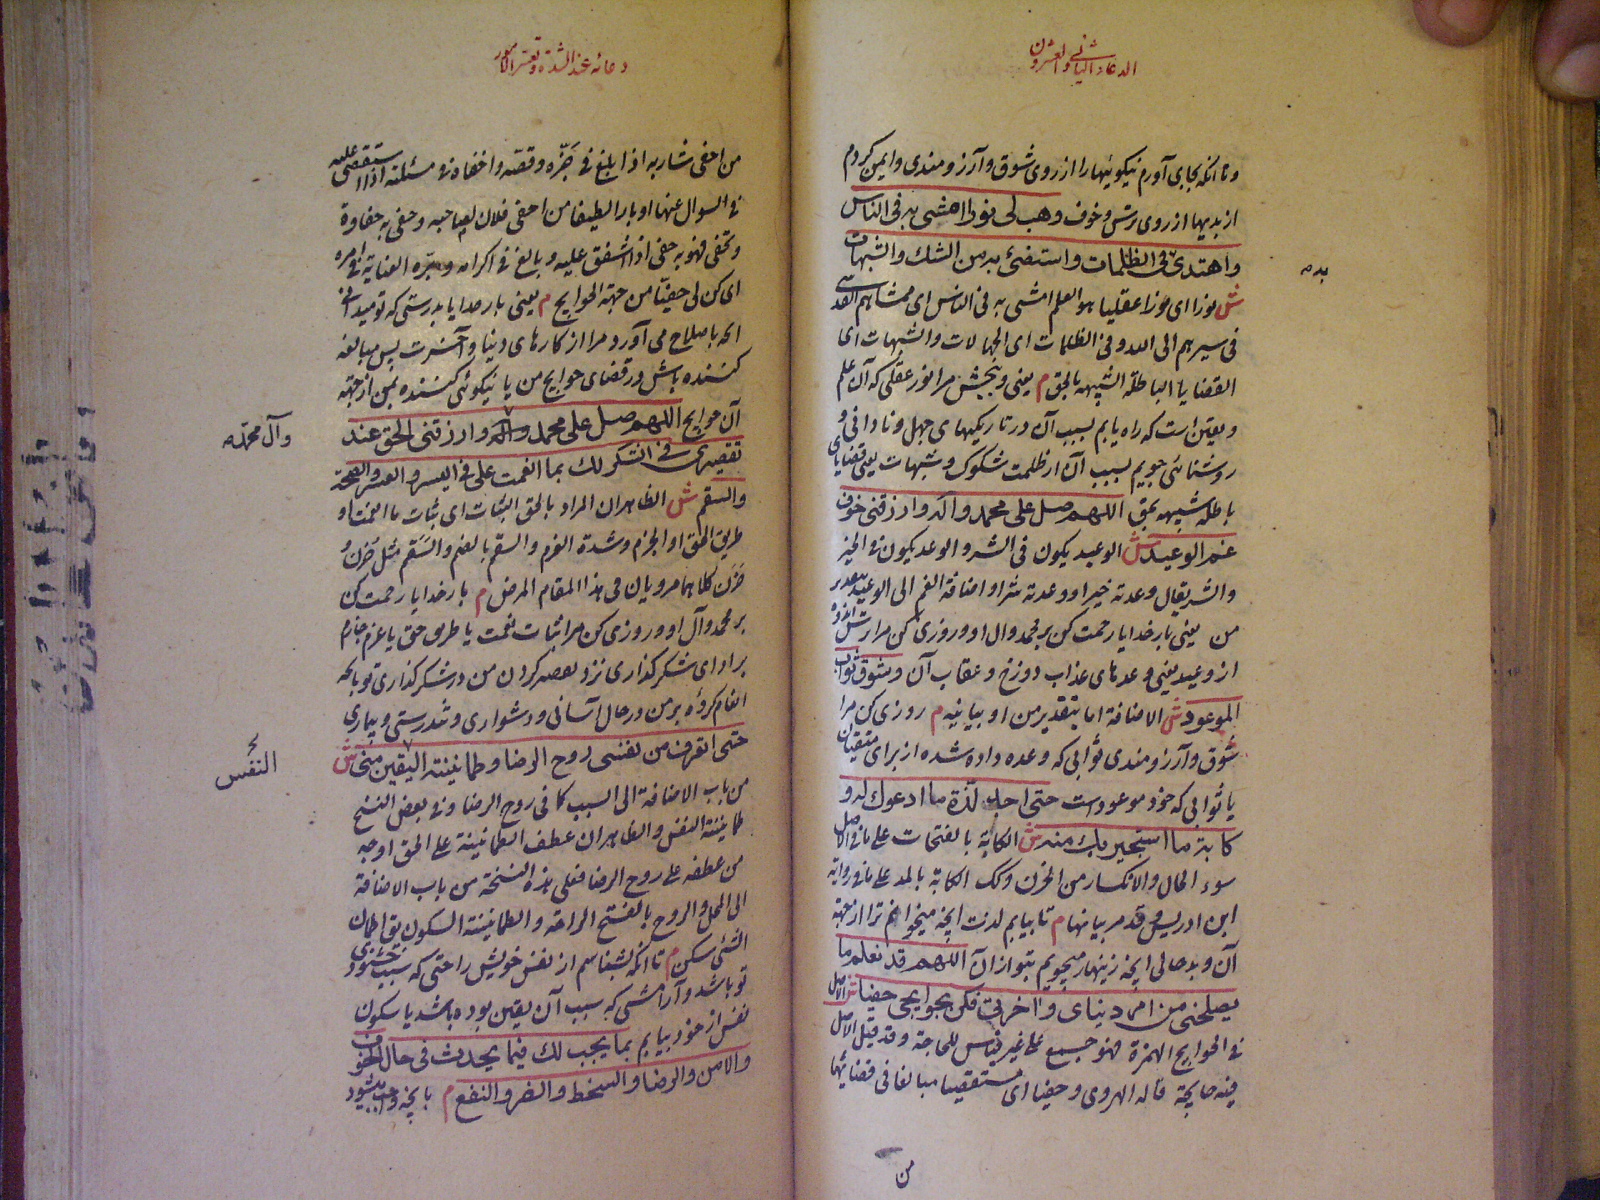 الدعاء الثانی والعشرون
و تا آنکه بجای آورم نیکوئیها را از روی شوق و آرزومندی و ایمن کردم
از بدیها از روی ترس و خوف وهب لی نورا امشی به فی الناس
واهتدی فی الظلمات واستضیٔ به من الشک والشبهات
ش نورا ای نورا عقلیا هو العلم امشی به فی الناس ای
فی سیرهم الی الله وفی الظلمات ای الجهالات والشبهات ای
القضایا الباطلة الشبیهة بالحق م یعنی و ببخش مرا نور عقلی که آن علم
و یقین است که راه یابم بسبب آن در تاریکیهای جهل و نادانی و
روشنائی جویم بسبب آن از ظلمت شکوک و شبهات یعنی قضایای
باطله شبیهه بحق اللهم صل علی محمد واله وارزقنی خوف
غم الوعید ش الوعید یکون فی الشر والوعد یکون فی الخیر
والشر یقال وعدته خیرا ووعدته شرا و اضافة الغم الی الوعید بتقدیر
من یعنی بارخدایا رحمت کن بر محمد وال او و روزی کن مرا ترس
از وعید یعنی وعدهای عذاب دوزخ و عقاب آن وشوق ثواب
الموعود ش الاضافة اما بتقدیر من او بیانیه م روزی کن مرا
شوق و آرزومندی ثوابی که وعده داده شده از برای متقیان
یا ثوابی که خود موعود است حتی اجد لذة ما ادعوک له و
کابة ما استجیر بک منه ش الکابة بالفتحات علی ما فی الاصل
سوء الحال والانکسار من الحزن وکک الکابة بالمد علی ما فی روایة
ابن ادریس وقد مر بیانها م تا بیابم لذت آنچه میخوانم ترا از جهة
آن و بدحالی آنچه زینهار میجویم بتو از آن اللهم قد تعلم ما
یصلحنی من امر دنیای و اخرتی فکن بحوایجی حفیا ش الاصل
فی الحوایج الهمزة فهو جمع علی غیر قیاس للحاجة وقد قیل الاصل
فیه حایجة قاله الهروی وحفیا ای مستقصیا مبالغا فی قضائها
من
به
دعائه عند الشدة وتعسر الامور
من احفی شاربه اذا بلغ فی جزه وقصه واحفاه فی مسئلته اذا استقصی علیه
فی السوال عنها او بارا لطیفا من احفی فلان لصاحبه وحفی به حفاوة
وتحفی فهو به حفی اذا اشفق علیه وبالغ فی اکرامه ومبره العنایة فی امره
ای کن لی حفیا من جهة الحوایج م یعنی بار خدایا بدرستی که تو میدانی
آنچه باصلاح می آورد مرا از کارهای دنیا و آخرت پس مبالغه
کننده باش در قضای حوایج من یا نیکوئی کننده بمن از جهة
آن حوایج اللهم صل علی محمد واله وارزقنی الحق عند
تقصیری فی الشکر لک بما انعمت علی فی الیسر والعسر والصحة
والسقم ش الظاهر ان المراد بالحق الثبات ای ثبات ما انعمت او
طریق الحق او الجزم وشدة العزم والسقم بالضم والسقم مثل حزن و
حزن کلاهما مرویان فی هذا المقام المرض م بار خدایا رحمت کن
بر محمد وآل او و روزی کن مرا ثبات نعمت یا طریق حق یا عزم جازم
بر ادای شکر گذاری نزد تقصیر کردن من در شکر گذاری تو بآنچه
انعام کردهٔ بر من در حال آسانی و دشواری و تندرستی و بیماری
حتی اتعرف من نفسی روح الرضا وطمانینة الیقین منی ش
من باب الاضافة الی السبب کما فی روح الرضا وفی بعض النسخ
طمانینة النفس والظاهر ان عطف الطمانینة علی الحق اوجه
من عطفه علی روح الرضا فعلی هذه النسخة من باب الاضافة
الی المحل والروح بالفتح الراحة والطمانینة السکون یق اطمان
الشئ سکن م تا آنکه بشناسم از نفس خویش راحتی که سبب خشنودی
تو باشد و آرامشی که سبب آن یقین بوده باشد یا سکون
نفس از خود بیابم بما یجب لک فیما یحدث فی حال الخوف
والامن والرضا والسخط والضر والنفع م بآنچه واجب میشود
وآل محمد
النفس